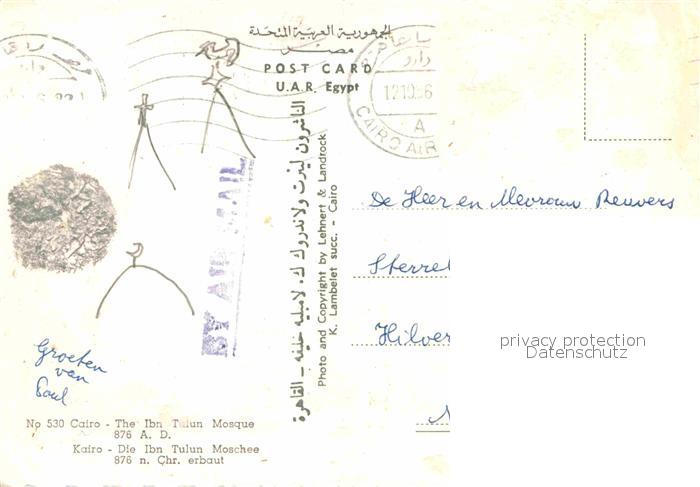 الجمهورية العربية المتحدة
مصر
POST CARD
U.A.R. Egypt
BY AIR MAIL
CAIRO AIR
A
الناشرون لينرت ولاندروك ك. لامبليه خليفه - القاهرة
Photo and Copyright by Lehnert & Landrock
K. Lambelet succ. - Cairo
De Heer en Mevrouw Reuvers
Sterre
Hilver
privacy protection
Datenschutz
Groeten
van
Paul
No 530 Cairo - The Ibn Tulun Mosque
876 A. D.
Kairo - Die Ibn Tulun Moschee
876 n. Chr. erbaut